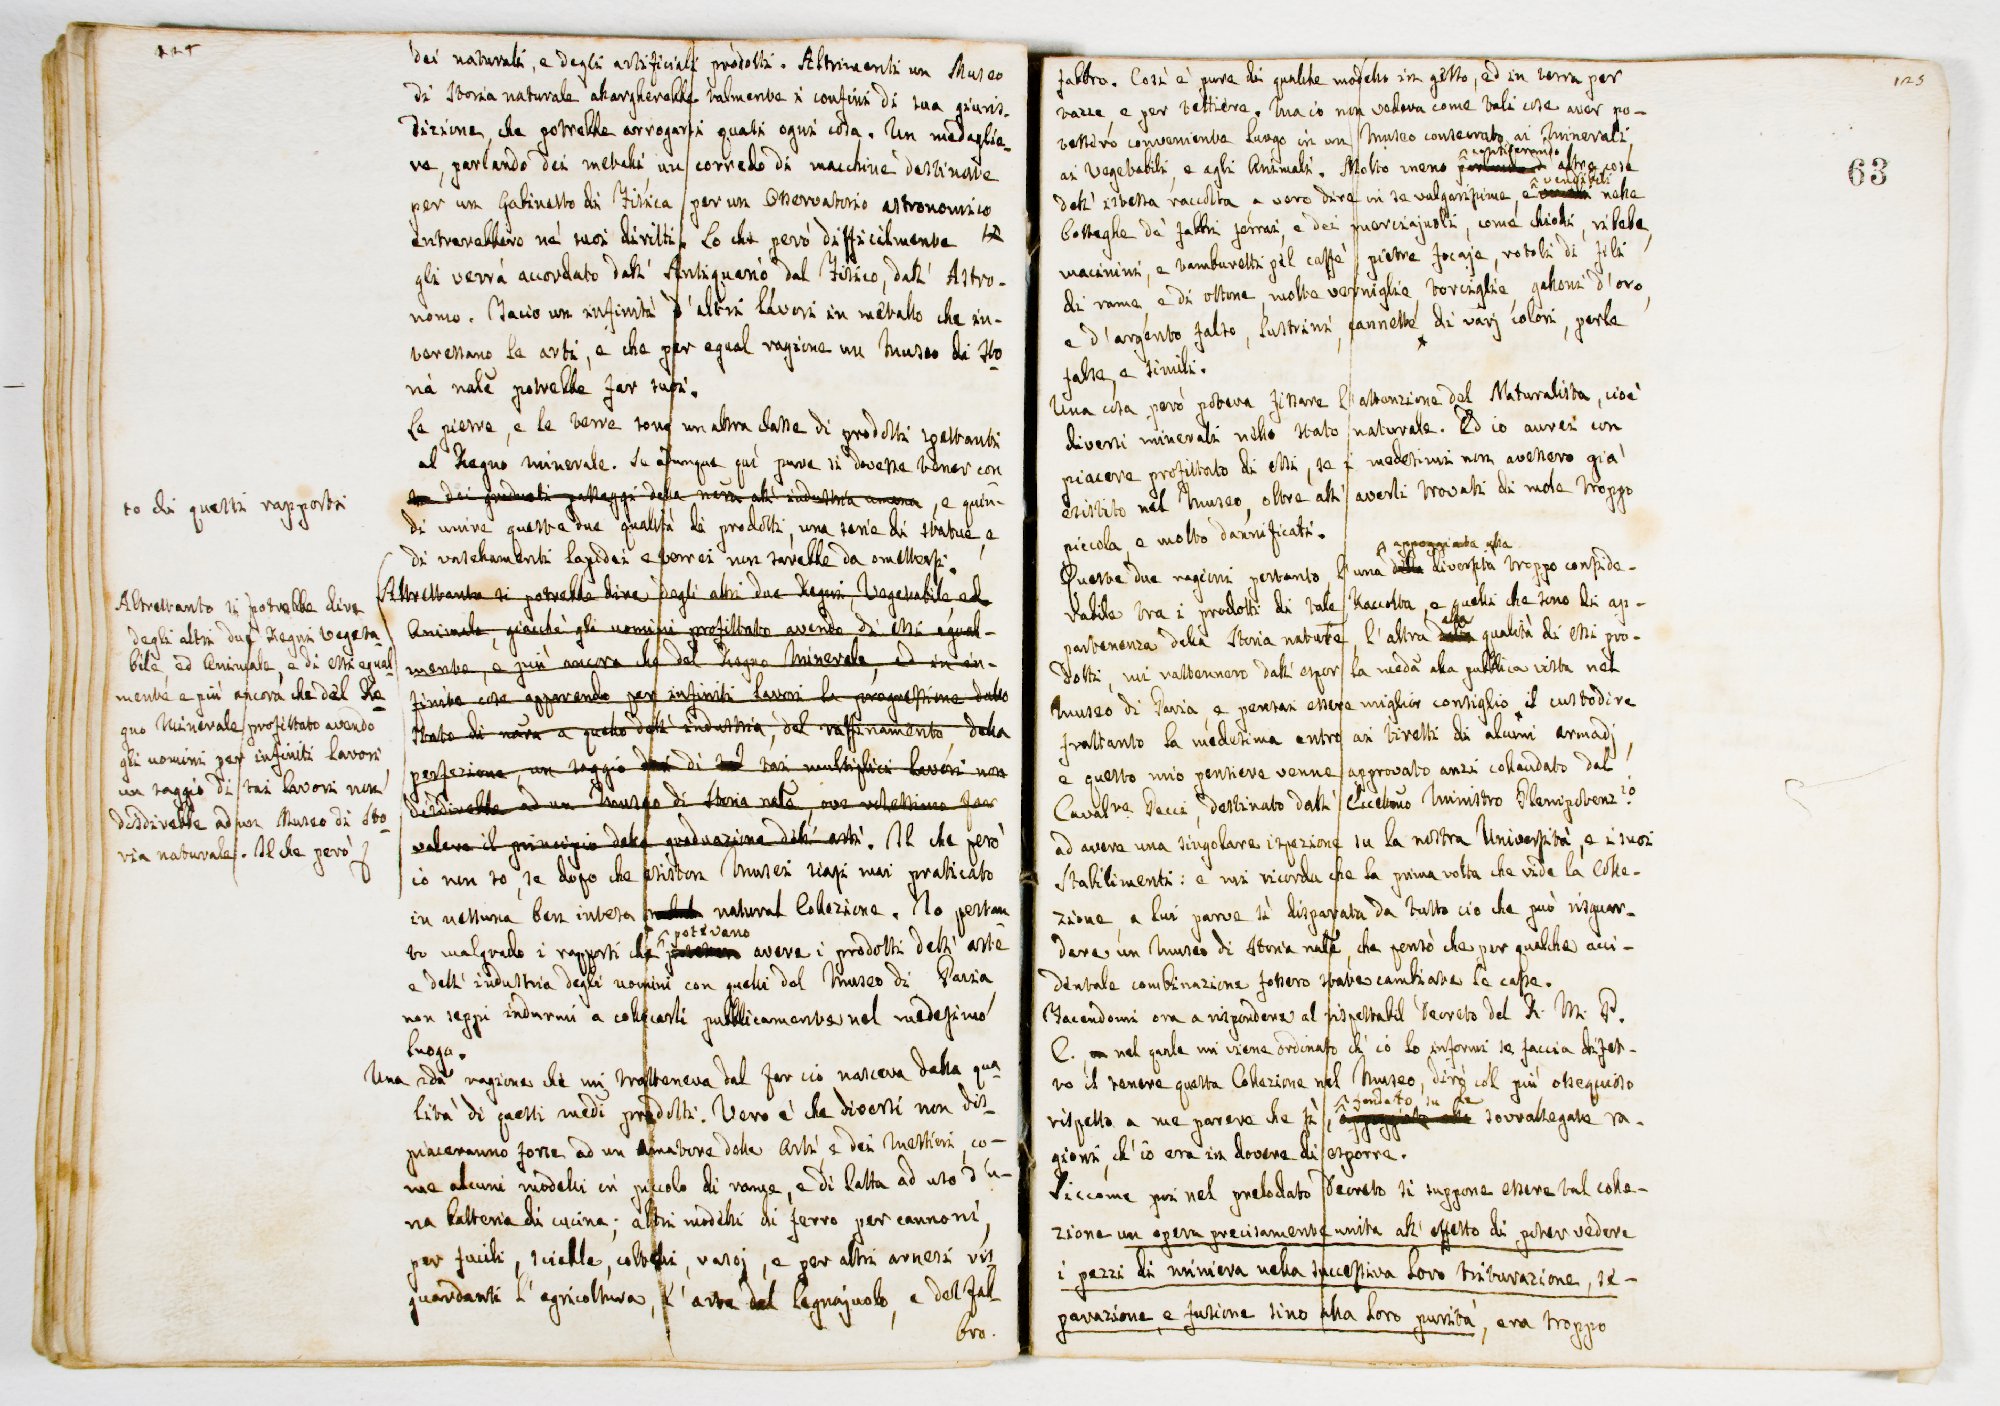 dei naturali, e degli artificiali prodotti. Altrimenti un Museo
di Storia naturale allargherebbe talmente i confini di sua giuris-
dizione, che potrebbe arrogarsi quasi ogni cosa. Un medaglie-
re, parlando dei metalli un corredo di macchine destinate
per un Gabinetto di Fisica per un Osservatorio astronomico
entrerebbero ne' suoi diritti. Lo che però difficilmente
gli verrà accordato dall' Antiquario dal Fisico, dall' Astro-
nomo. Tacio un infinità d'altri lavori in metallo che in-
teressano le arti, e che per egual ragione un Museo di Sto
ria nale potrebbe far suoi.
Le pietre, e le terre sono un altra classe di prodotti spettanti
al Regno minerale. Se adunque quì pure si dovesse tener con
to dei graduati passaggi della nera all' industria umana, e quin-
di unire queste due qualità di prodotti, una serie di statue, e
di vasellamenti lapidei e terrei non sarebbe da omettersi.
Altrettanto si potrebbe dire degli altri due Regni, Vegetabile ed
Animale, giacchè gli uomini profittato avendo di essi egual-
mente, e più ancora che del Regno Minerale, ed in in-
finite cose apparendo per infiniti lavori la progressione dallo
stato di nara a quello dell' industria, del raffinamento, della
perfezione, un saggio di tai multiplici lavori non
disdirebbe ad un Museo di Storia nale, ove volessimo far
valere il principio della graduazione dell' arti. Il che però
io non sò, se dopo che esiston Musei siasi mai praticato
in nessuna ben intesa natural Collezione. Io pertan
to malgrado i rapporti che potevano avere i prodotti dell' arte
e dell' industria degli uomini con quelli del Museo di Pavia,
non seppi indurmi a collocarli pubblicamente nel medesimo
luogo.
Una 2da ragione che mi tratteneva dal far ciò nasceva dalla qua
lità di questi medi prodotti. Vero è che diversi non dis-
piaceranno forse ad un Amatore delle Arti e dei Mestieri, co-
me alcuni modelli in piccolo di rame, e di latta ad uso d'u-
na batteria di cucina; altri modelli di ferro per cannoni,
per fucili, sciable, coltelli, rasoj, e per altri arnesi ris
guardanti l' agricoltura, l' arte del legnajuolo, e del fab
bro.
to di questi rapporti
Altrettanto si potrebbe dire
degli altri due Regni Vegeta
bile ed Animale, e di essi egual
mente e più ancora che del Re
gno Minerale profittato avendo
gli uomini per infiniti lavori
un saggio di tai lavori non
disdirebbe ad un Museo di Sto
ria naturale. Il che però
125
63
fabbro. Così è pure di qualche modello in gesso, ed in terra per
vasse, e per tettiere. Ma io non vedeva come tali cose aver po-
tessero conveniente luogo in un Museo consecrato ai Minerali,
ai Vegetabili, e agli Animali. Molto meno considerando altre cose
dell' istessa raccolta a vero dire in se volgarissime, e vendibili nelle
botteghe de' fabbri ferrai, e dei merciajuoli, come chiodi, ribebe,
macinini, e tamburetti pel caffè, pietre focaje, rotoli di fili
di rame, e di ottone, molte vermiglie, torciglie, galloni d'oro,
e d'argento falso, lustrini, cannette di varj colori, perle
false, e simili.
Una cosa però poteva fissare l'attenzione del Naturalista, cioè
diversi minerali nello stato naturale. Ed io aurei con
piacere profittato di essi, se i medesimi non avessero già
esistito nel Museo, oltre all' averli trovati di mole troppo
piccola, e molto dannificati.
Queste due ragioni pertanto, l'una appoggiata alla diversità troppo conside-
rabile tra i prodotti di tale Raccolta, e quelli che sono di ap-
partenenza della Storia naturle, l'altra alla qualità di essi pro-
dotti, mi rattennero dall' espor la meda alla pubblica vista nel
Museo di Pavia, e pensai essere miglior consiglio il custodire
frattanto la medesima entro ai tiretti di alcuni armadj,
e questo mio pensiere venne approvato anzi collaudato dal
Cavalre Pecci, destinato dall' Eccellmo Ministro Plenipotenzio
ad avere una singolare ispezione su la nostra Università, e i suoi
Stabilimenti: e mi ricorda che la prima volta che vide la Colle-
zione, a lui parve sì disparata da tutto cio che può risguar-
dare un Museo di Storia nale, che pensò che per qualche acci-
dentale combinazione fossero state cambiate le casse.
Facendomi ora a rispondere al rispettabil Decreto del R. M. P.
C. nel quale mi viene ordinato ch' io lo informi se faccia difet-
to il tenere questa Collezione nel Museo, dirò col più ossequioso
rispetto a me parere che sì, fondato su le sovrallegate ra-
gioni, ch' io era in dovere di esporre.
Siccome poi nel prelodato Decreto si suppone essere tal colle-
zione un opera precisamente unita all' effetto di poter vedere
i pezzi di miniera nella successiva loro triturazione, se-
parazione, e fusione sino alla loro purità, era troppo